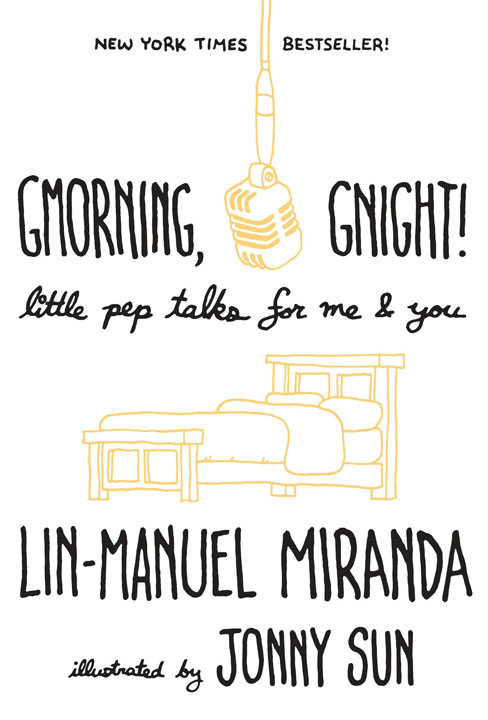 NEW YORK TIMES BESTSELLER!
GMORNING, GNIGHT!
little pep talks for me & you
LIN-MANUEL MIRANDA
illustrated by JONNY SUN